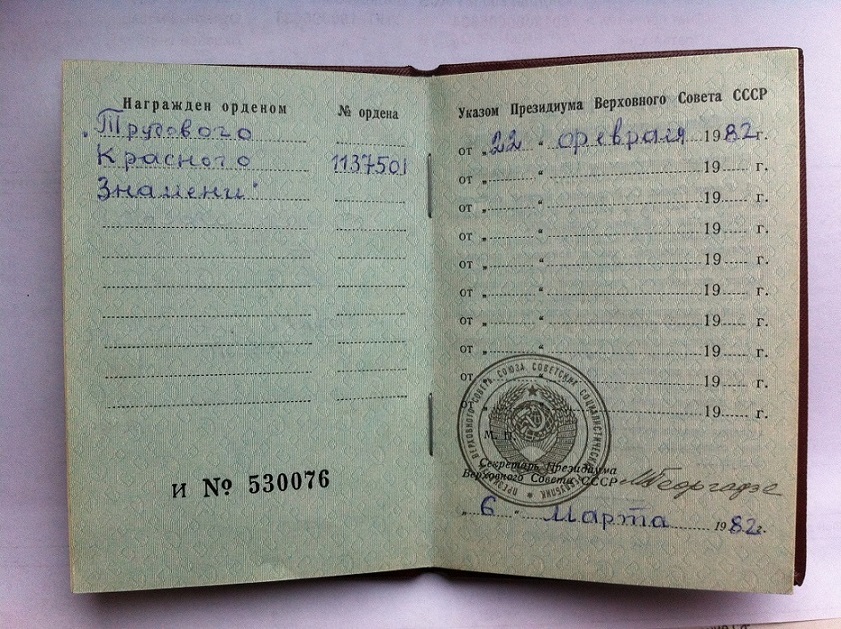 Награжден орденом
№ ордена
„Трудового
Красного
1137501
Знамени"
И № 530076
Указом Президиума Верховного Совета СССР
от „22 " февраля 1982 г.
от „ " 19 г.
от „ " 19 г.
от „ " 19 г.
от „ " 19 г.
от „ " 19 г.
от „ " 19 г.
от „ " 19 г.
от „ " 19 г.
от „ " 19 г.
ПРЕЗИДИУМ ВЕРХОВНОГО СОВЕТА СОЮЗА СОВЕТСКИХ СОЦИАЛИСТИЧЕСКИХ РЕСПУБЛИК
М. П.
Секретарь Президиума
Верховного Совета СССР
МГеоргадзе
„ 6 " Марта 1982 г.